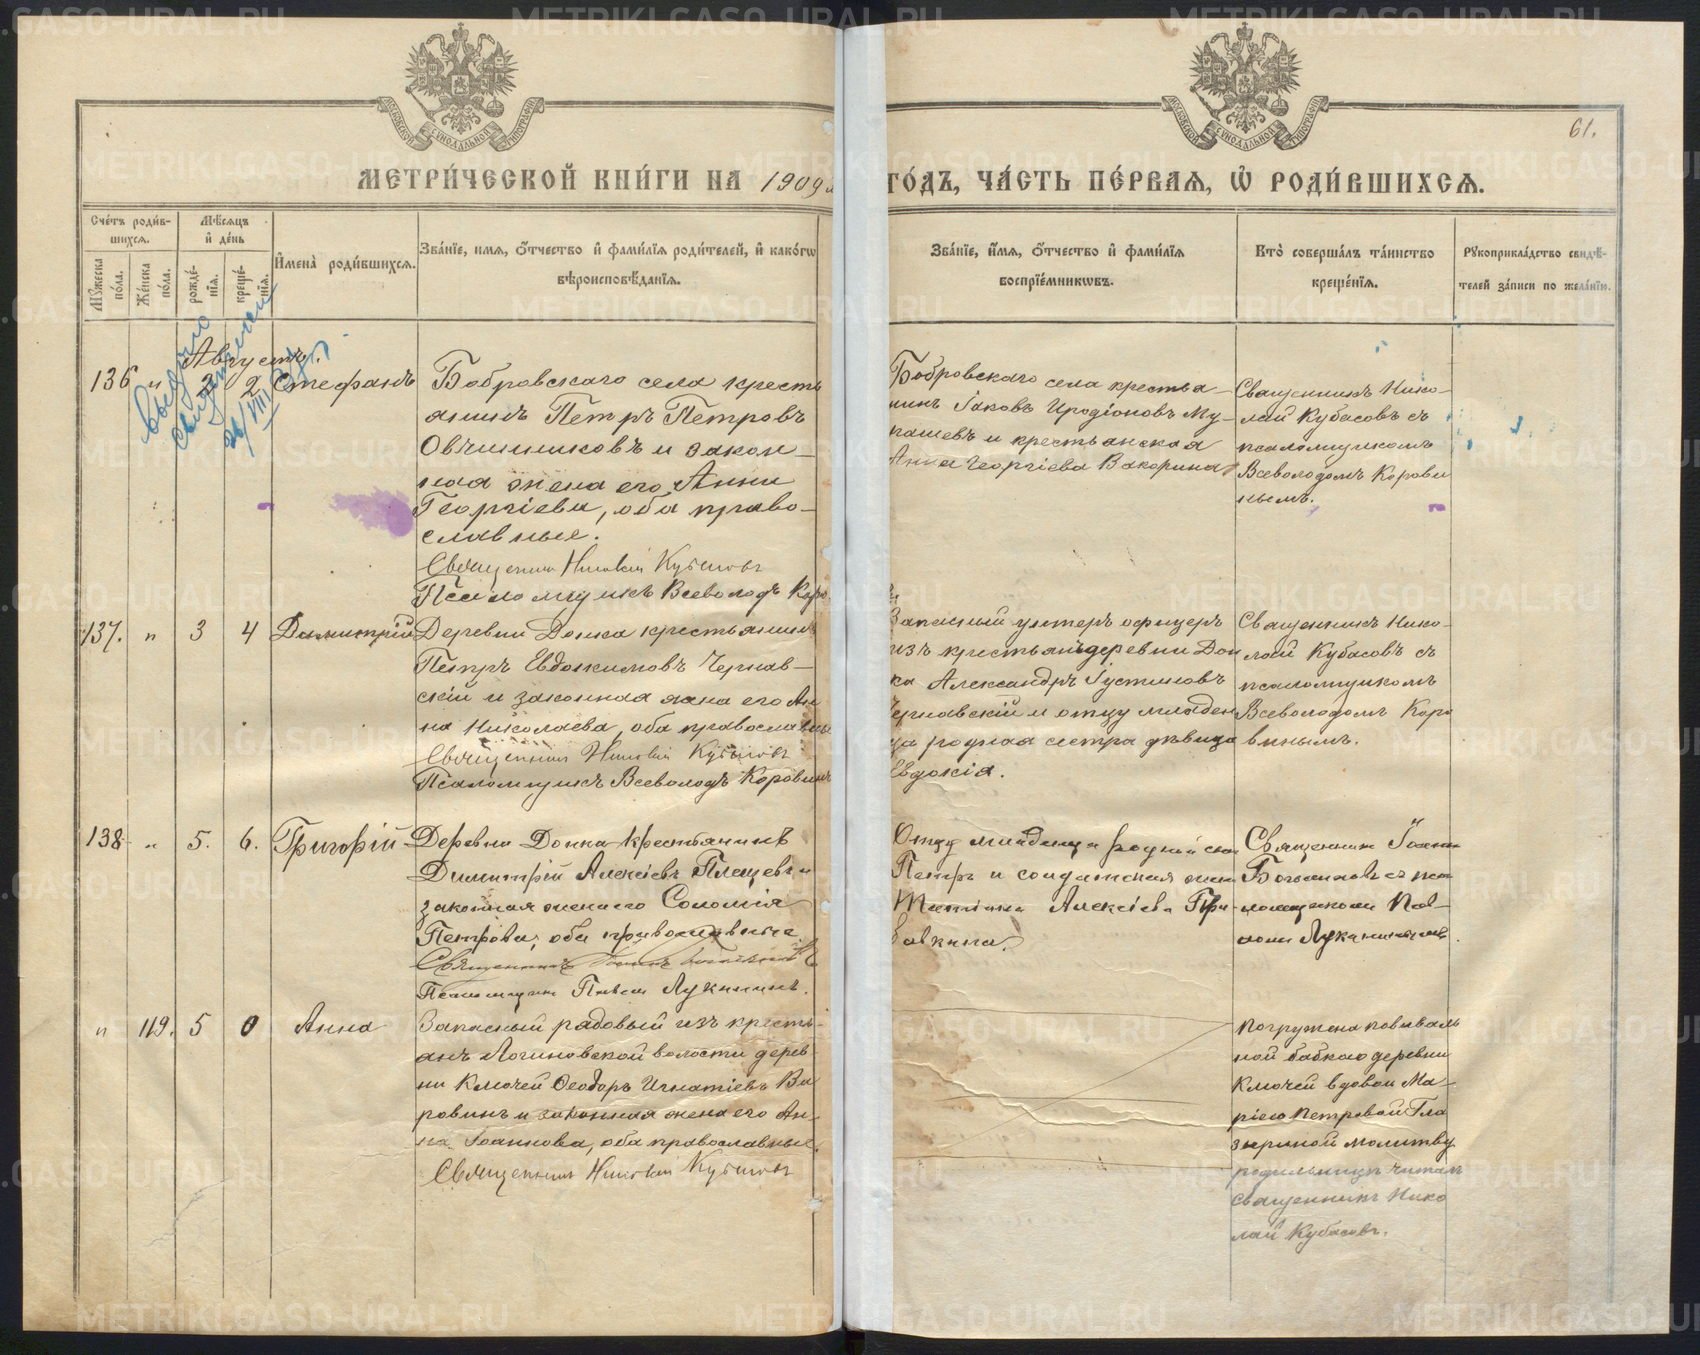 МЕТРИ́ЧЕСКОЙ КНИ́ГИ НА 1909
ГО́ДЪ, ЧА́СТЬ ПЕ́РВАЯ, Ѡ РОДИ́ВШИХСЯ.
61.
Сче́тъ роди́в-
шихся.
Мѣ́сяцъ
и҆ де́нь
Мꙋ́жеска
по́ла.
Же́нска
по́ла.
рожде́-
нїя.
креще́-
нїя.
И҆мена̀ роди́вшихся.
Зва́нїе, имя, ѻ҆́тчество и҆ фами́лїѧ роди́телей, и҆ како́гѡ
вѣроисповѣ́данїя.
Зва́нїе, и҆́мя, ѻ҆́тчество и҆ фами́лїя
воспрїе́мникѡвъ.
Кто̀ соверша́лъ та́инство
креще́нїя.
Рꙋкоприкла́дство свидѣ́-
телей за́писи по жела́нїю.
выдано
Августъ.
136 " 2 2 Стефанъ
Бобровскаго села кресть
янинъ Петръ Петровъ
Овчинниковъ и закон-
ная жена его Анна
Георгіева, оба право-
славные.
Священникъ Николай Кубасовъ
Псаломщикъ Всеволодъ Коро
Бобровскаго села крестья-
нинъ Іаковъ Иродіоновъ Му-
рашевъ и крестьянская
Анна Георгіева Вакорина
Священникъ Нико-
лай Кубасовъ съ
псаломщикомъ
Всеволодомъ Корови
нымъ.
137. " 3 4 Димитрій
Деревни Донка крестьянинъ
Петръ Евдокимовъ Черняв-
скій и законная жена его Ан
на Николаева, оба православные
Священникъ Николай Кубасовъ
Псаломщикъ Всеволодъ Коровинъ
Запасный унтеръ офицеръ
изъ крестьянъ деревни Дон
ка Александръ Іустиновъ
Чернявскій и отцу младен
ца родная сестра дѣвица
Евдокія.
Священникъ Нико-
лай Кубасовъ съ
псаломщикомъ
Всеволодомъ Коро
винымъ.
138 " 5. 6. Григорій
Деревни Донка крестьянинъ
Димитрій Алексіевъ Плещевъ и
законная жена его Соломія
Петрова, оба православные.
Священникъ Іоаннъ
Псаломщикъ Павелъ Лукининъ.
Отцу младенца родной
Петръ и солдатская жена
Татіана Алексіева При
бавкина.
Священникъ Іоаннъ
съ пса
ломщикомъ Пав-
ломъ Лукининымъ.
" 119. 5 0 Анна
Запасный рядовый изъ кресть-
янъ Логиновской волости дерев-
ни Ключей Ѳеодоръ Игнатіевъ Ва
ровинъ и законная жена его Ан-
на Іоаннова, оба православные.
Священникъ Николай Кубасовъ
Погружена повиваль
ной бабкою деревни
Ключей вдовой Ма-
ріею Петровой Гла
зыриной молитву
родильницѣ читалъ
Священникъ Нико
лай Кубасовъ.
METRIKI.GASO-URAL.RU